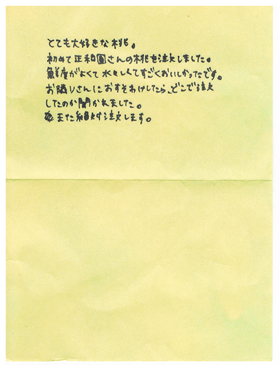 とても大好きな桃。
初めて正和園さんの桃を注文しました。
鮮度がよくて水々しくてすごくおいしかったです。
お隣りさんにおすそわけしたら、どこで注文
したのか聞かれました。
また絶対注文します。